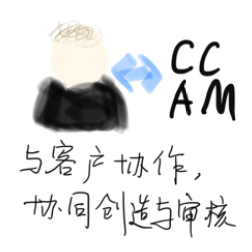 CC
AM
与客户协作，
协同创造与审核